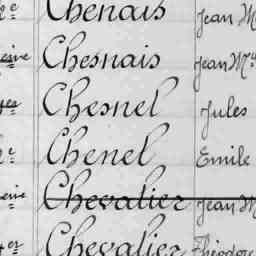 Chenais Jean M
Chesnais Jean M
Chesnel Jules
Chenel Emile
Chevalier Jean M
Chevalier Théodore